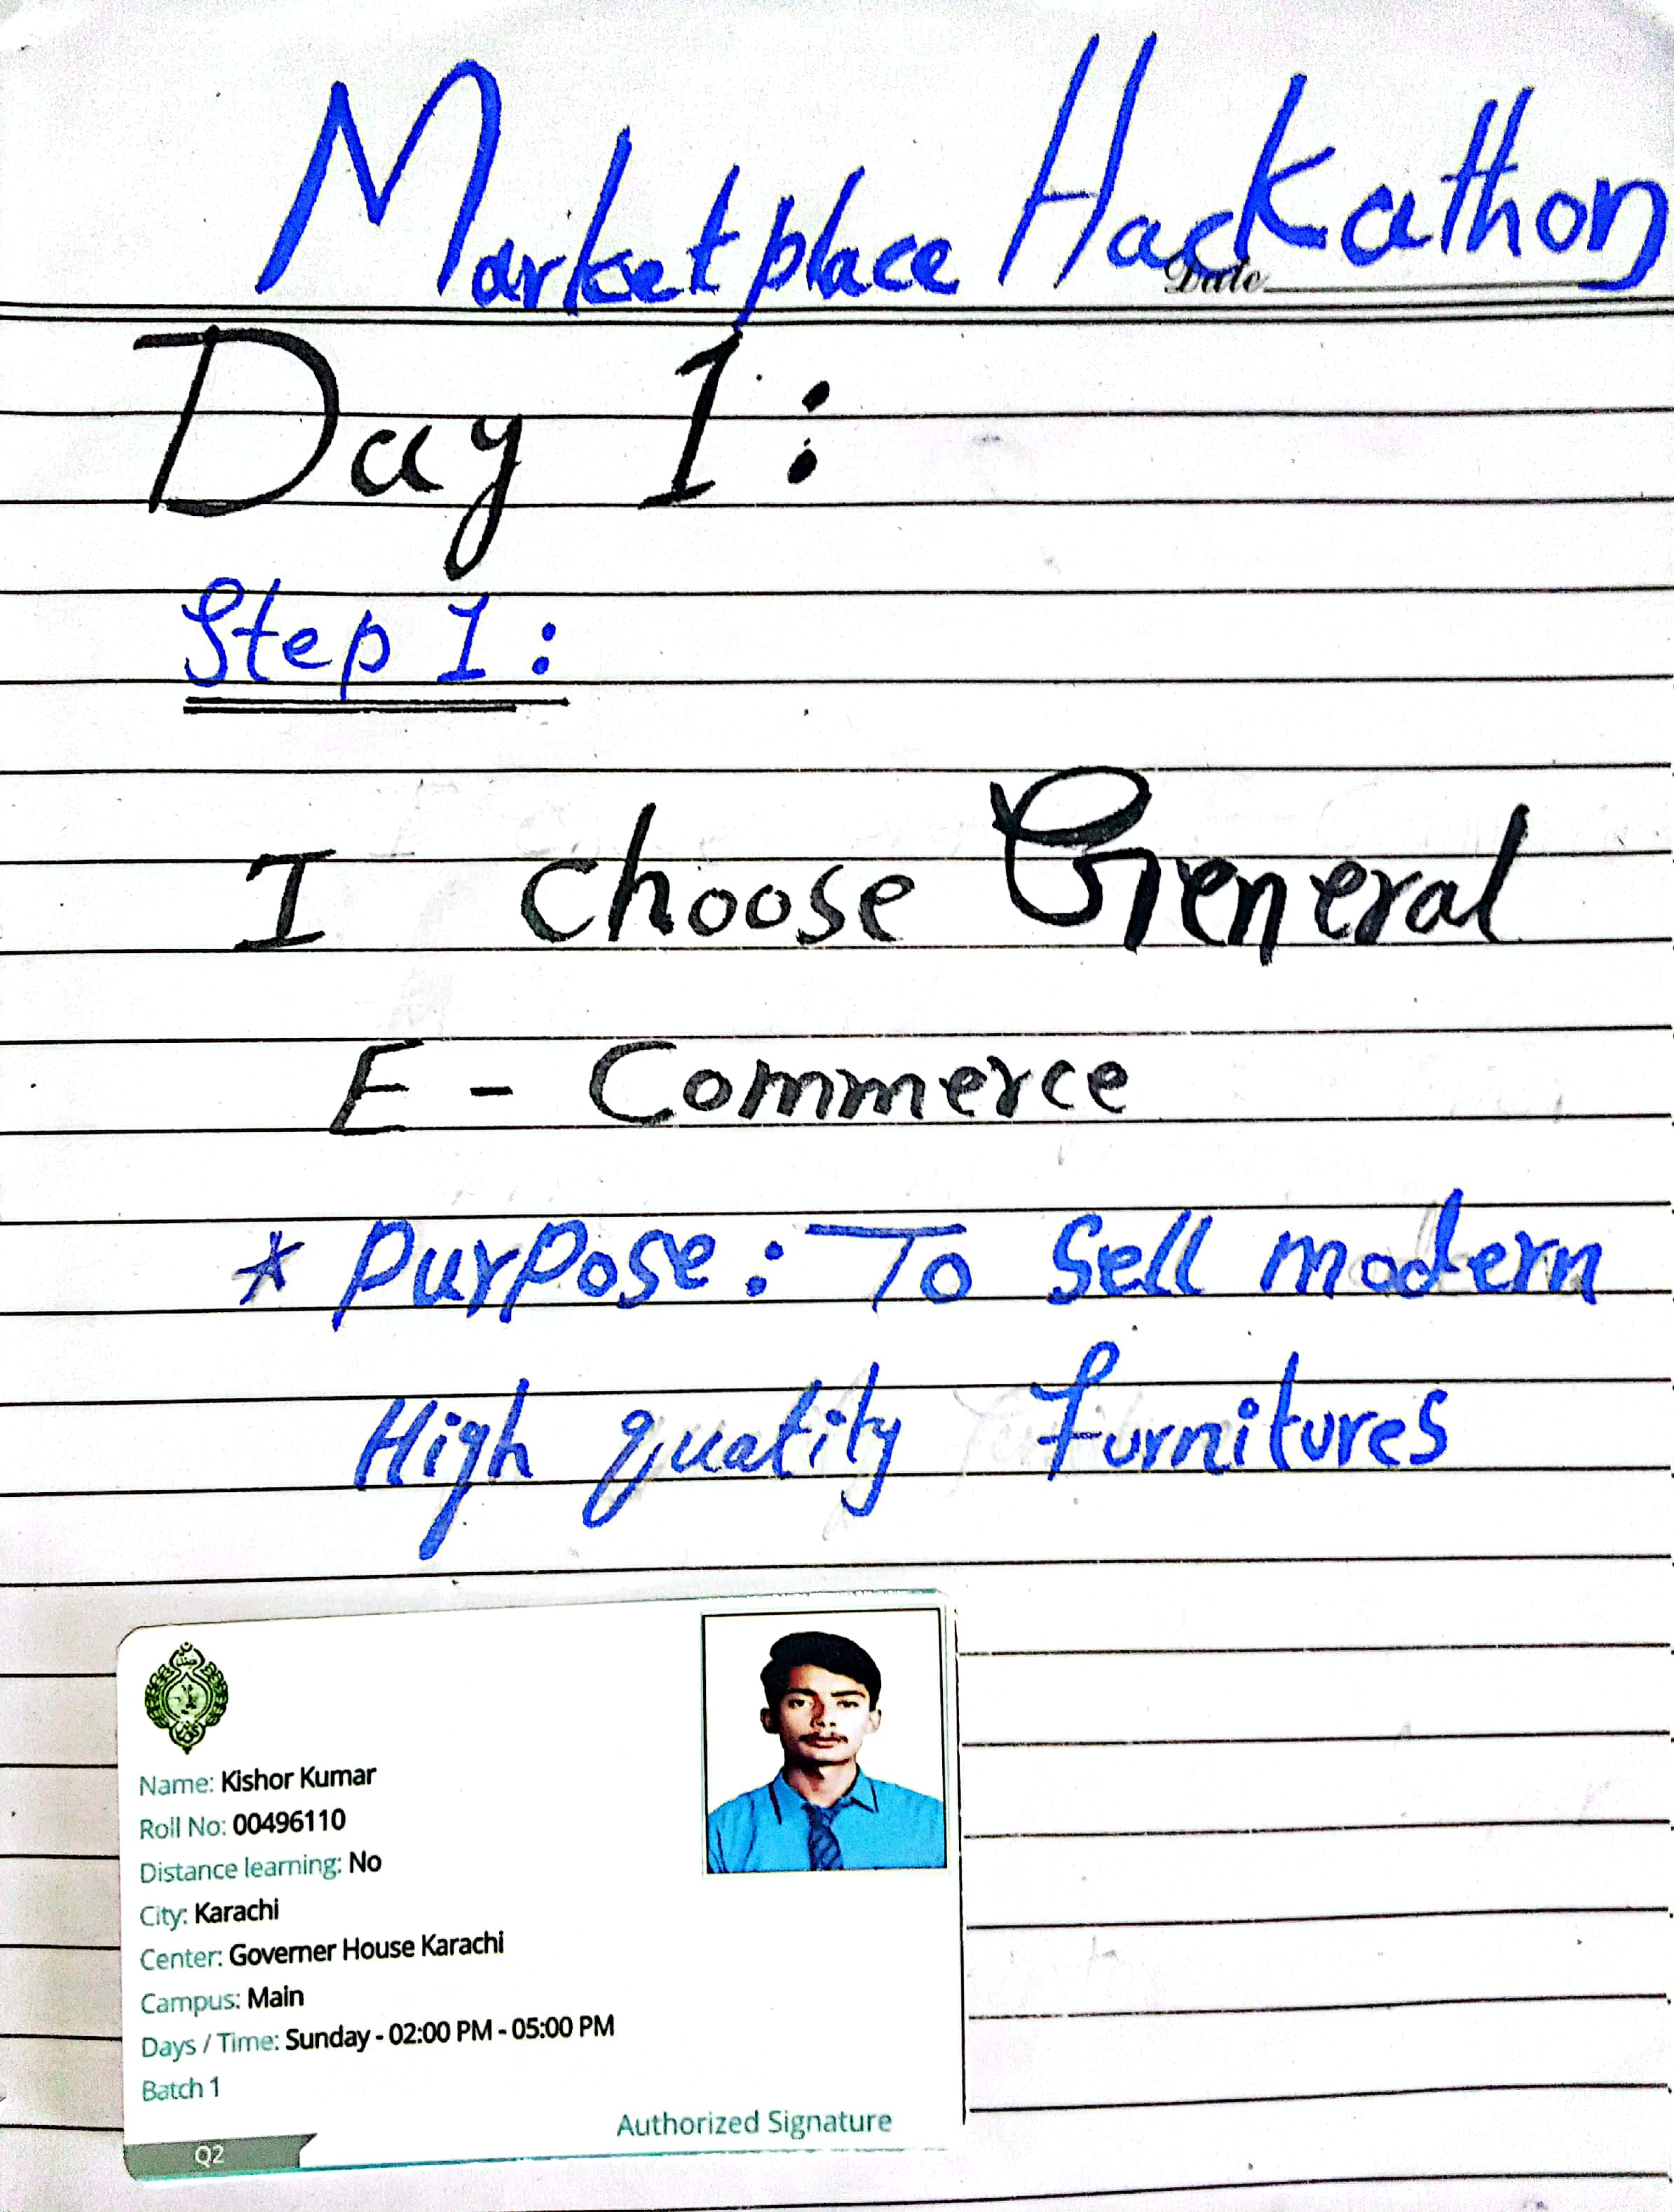 Marketplace Hackathon
Date
Day 1:
Step 1:
I choose General
E - Commerce
* Purpose: To Sell modern
High quality furnitures
Name: Kishor Kumar
Roll No: 00496110
Distance learning: No
City: Karachi
Center: Governer House Karachi
Campus: Main
Days / Time: Sunday - 02:00 PM - 05:00 PM
Batch 1
Authorized Signature
Q2